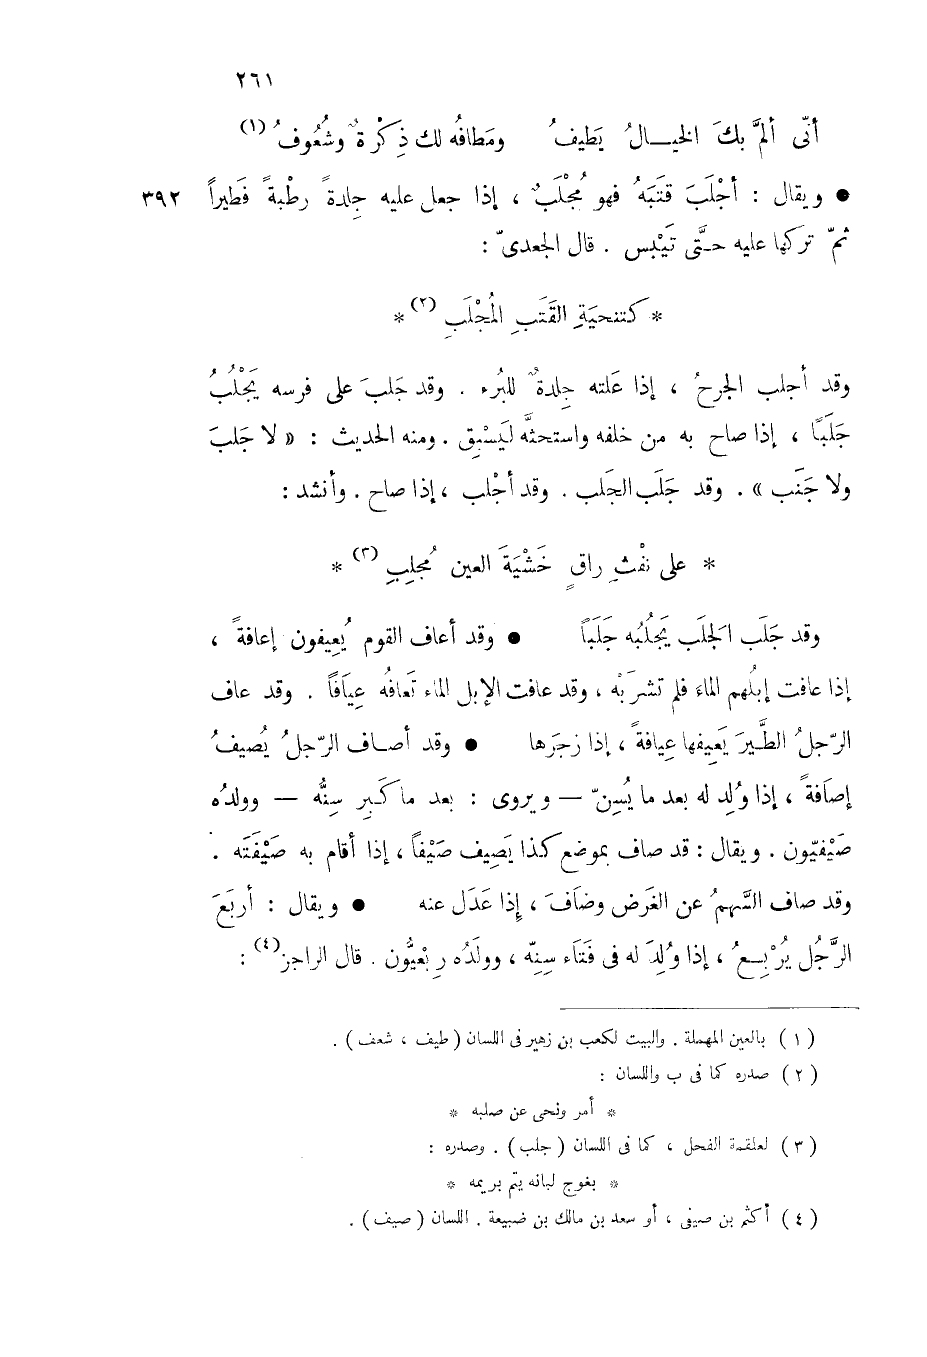 ٢٦١
أنّى ألمَّ بكَ الخيـالُ يَطيفُ ومَطافُه لك ذِكْرةٌ وشُعُوفُ (١)
● ويقال : أجْلَبَ قَتَبَهُ فهو مُجْلَبٌ ، إذا جعل عليه جِلدةً رطْبةً فَطيراً ٣٩٢
ثمّ تركها عليه حتَّى تَيْبَس . قال الجعدىّ :
* كتنحيَةِ القَتَبِ المُجْلَبِ (٢) *
وقد أجلب الجرحُ ، إذا عَلَته جِلدةٌ للبُرء . وقد جَلبَ على فرسه يَجْلُبُ
جَلَبًا ، إذا صاح به من خلفه واستحثَّه ليَسْبِق . ومنه الحديث : « لا جَلَبَ
ولا جَنَب » . وقد جَلَب الجَلَب . وقد أجْلب ، إذا صاح . وأنشد :
* على نفْثِ راقٍ خَشْيَةَ العين مُجلِبِ (٣) *
وقد جَلَب الجَلَب يَجْلُبُه جَلَباً ● وقد أعاف القوم يُعِيفون إعافةً ،
إذا عافت إبلُهم الماءَ فلم تشرَبْه ، وقد عافت الإبل الماء تَعافُه عِيَافًا . وقد عاف
الرّجلُ الطَّيرَ يَعِيفها عِيافةً ، إذا زجَرها ● وقد أصـاف الرّجلُ يُصيفُ
إصَافةً ، إذا وُلِد له بعد ما يُسِنّ — ويروى : بعد ما كَبِرِ سِنُّه — وولدُه
صَيْفيّون . ويقال : قد صاف بموضع كذا يَصِيف صَيْفاً ، إذا أقام به صَيْفَتَه .
وقد صاف السَّهمُ عن الغَرض وضَافَ ، إِذا عَدَل عنه ● ويقال : أربَعَ
الرَّجُل يُرْبِـعُ ، إذا وُلِدَ له فى فَتَاء سِنِّه ، وولَدُه رِبْعيُّون . قال الراجز(٤) :
( ١ ) بالعين المهملة . والبيت لكعب بن زهير فى اللسان ( طيف ، شعف ) .
( ٢ ) صدره كما فى ب واللسان :
* أمر ونحى عن صلبه *
( ٣ ) لعلقمة الفحل ، كما فى اللسان ( جلب ) . وصدره :
* بغوج لبانه يتم بريمه *
( ٤ ) أكثم بن صيفى ، أو سعد بن مالك بن ضبيعة . اللسان ( صيف ) .